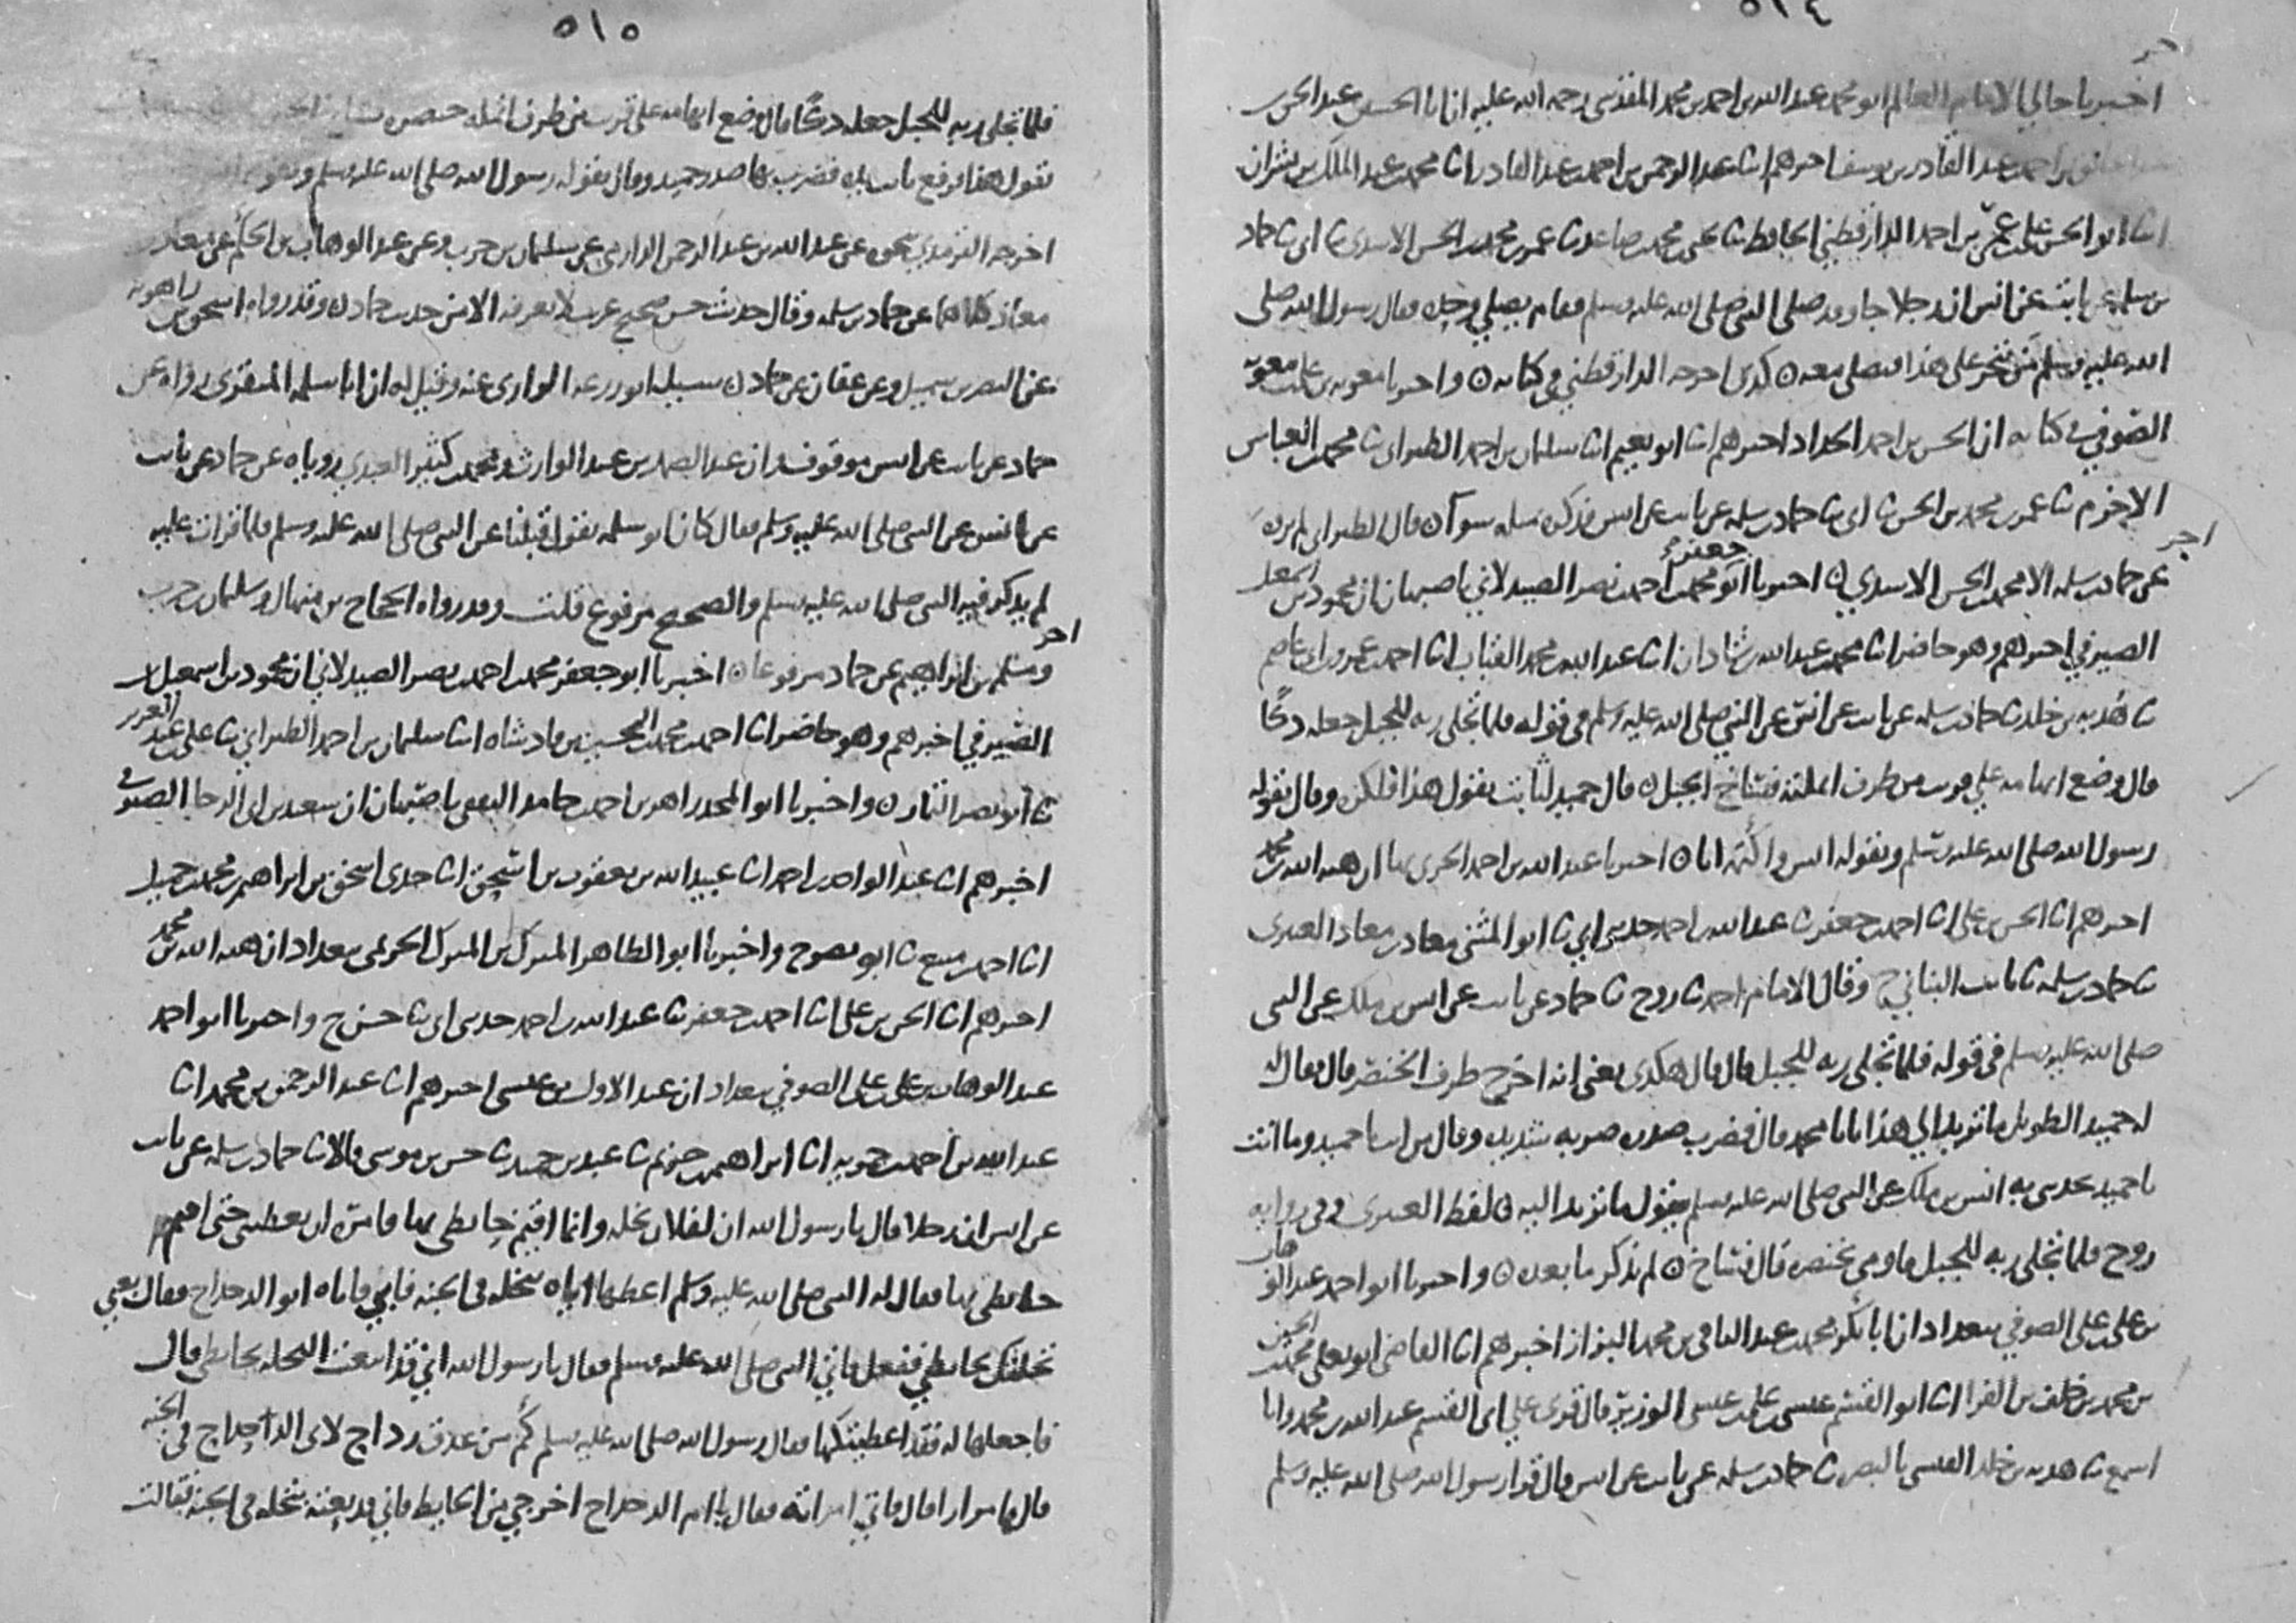 ٥١٤
اخبرنا خالي الامام العالم ابو محمد عبد الله بن احمد بن محمد المقدسي رحمه الله عليه ان ابا الحسين عبد الحق بن
عبد الخالق بن احمد بن عبد القادر بن يوسف اخبرهم انا عبد الرحمن بن احمد بن عبد القادر انا محمد بن عبد الملك بن بشران
انا ابو الحسن علي بن عمر بن احمد الدارقطني الحافظ ثنا يحيى بن محمد بن صاعد ثنا عمر بن محمد بن الحسن الاسدي ثنا ابي ثنا حماد
بن سلمه عن ثابت عن انس ان رجلا جا وقد صلى النبي صلى الله عليه وسلم فقام يصلي وحده فقال رسول الله صلى
الله عليه وسلم من يتجر على هذا فيصلي معه ٥ كذى اخرجه الدارقطني في كتابه ٥ واخبرنا معويه بن علي بن معويه
الصوفي في كتابه ان الحسن بن احمد الحداد اخبرهم انا ابو نعيم انا سليمان بن احمد الطبراني ثنا محمد بن العباس
الاخرم ثنا عمر بن محمد بن الحسن ثنا ابي ثنا حماد بن سلمه عن ثابت عن انس فذكر مثله سوآ ٥ قال الطبراني لم يروه
اخر
عن حماد بن سلمه الا محمد بن الحسن الاسدي ٥ اخبرنا ابو جعفر محمد بن احمد بن نصر الصيدلاني باصبهان ان محمود بن اسمعيل
الصيرفي اخبرهم وهو حاضر انا محمد بن عبد الله بن شاذان انا عبد الله بن محمد القباب انا احمد بن عمرو بن ابي عاصم
ثنا هدبه بن خلد ثنا حماد بن سلمه عن ثابت عن انس عن النبي صلى الله عليه وسلم في قوله فلما تجلى ربه للجبل جعله دكا
قال وضع ابهامه على قريب من طرف انملته فساخ الجبل ٥ قال حميد لثابت يقول هذا فلكن وقال يقوله
رسول الله صلى الله عليه وسلم ويقوله انس واكتمه انا ٥ اخبرنا عبد الله بن احمد الحربي بها ان هبه الله بن محمد
اخبرهم انا الحسن بن علي انا احمد بن جعفر ثنا عبد الله بن احمد حدثني ابي ثنا ابو المثنى معاذ بن معاذ العنبري
ثنا حماد بن سلمه ثنا ثابت البناني ح وقال الامام احمد ثنا روح ثنا حماد عن ثابت عن انس بن ملك عن النبي
صلى الله عليه وسلم في قوله فلما تجلى ربه للجبل قال قال هكذى يعني انه اخرج طرف الخنصر قال فقال
له حميد الطويل ما تريد الى هذا يابا محمد قال فضرب صدره ضربه شديده وقال من انت يا حميد وما انت
يا حميد يحدثني به انس بن ملك عن النبي صلى الله عليه وسلم فيقول ما تريد اليه ٥ لفظ العنبري وفي روايه
روح فلما تجلى ربه للجبل فاومى بخنصره قال فساخ ٥ لم يذكر ما بعده ٥ واخبرنا ابو احمد عبد الوهاب
بن علي بن علي الصوفي ببغداد ان ابا بكر محمد بن عبد الباقي بن محمد البزاز اخبرهم انا القاضي ابو يعلى محمد بن الحسين
بن محمد بن خلف بن الفرا انا ابو القسم عيسى بن علي بن عيسى الوزير قال قرى على ابي القسم عبد الله بن محمد وانا
اسمع ثنا هدبه بن خلد القيسي بالبصره ثنا حماد بن سلمه عن ثابت عن انس قال قرا رسول الله صلى الله عليه وسلم
٥١٥
فلما تجلى ربه للجبل جعله دكا قال وضع ابهامه على قريب من طرف انمله خنصره فساخ الجبل
تقول هذا فرفع ثابت يده فضرب بها صدر حميد وقال يقوله رسول الله صلى الله عليه وسلم ويقوله انس
اخرجه الترمذي بنحوه عن عبد الله بن عبد الرحمن الدارمي عن سليمان بن حرب وعن عبد الوهاب بن الحكم عن معاذ بن
معاذ كلاهما عن حماد بن سلمه وقال حديث حسن صحيح غريب لا نعرفه الا من حديث حماد ٥ وقد رواه اسحق بن راهويه
عن النضر بن شميل وعن عفان عن حماد ٥ سيل ابو زرعه الرازي عنه وقيل له ان ابا سلمه المنقري رواه عن
حماد عن ثابت عن انس موقوف وان عبد الصمد بن عبد الوارث ومحمد بن كثير العبدي روياه عن حماد عن ثابت
عن انس عن النبي صلى الله عليه وسلم فقال كان ابو سلمه يقول قبلنا عن النبي صلى الله عليه وسلم فلما قرات عليه
لم يذكر فيه النبي صلى الله عليه وسلم والصحيح مرفوع قلت وقد رواه الحجاج بن منهال وسليمان بن حرب
اخر
ومسلم بن ابراهيم عن حماد مرفوعا ٥ اخبرنا ابو جعفر محمد بن احمد بن نصر الصيدلاني ان محمود بن اسمعيل
الصيرفي اخبرهم وهو حاضر انا احمد بن محمد بن الحسين بن فادشاه انا سليمان بن احمد الطبراني ثنا علي بن عبد العزيز
ثنا ابو نصر التمار ٥ واخبرنا ابو المجد زاهر بن احمد بن حامد الثقفي باصبهان ان سعيد بن ابي الرجا الصيرفي
اخبرهم انا عبد الواحد بن احمد انا عبيد الله بن يعقوب بن اسحق انا جدي اسحق بن ابراهيم بن محمد بن جميل
انا احمد بن منيع ثنا ابو نصر ح واخبرنا ابو الطاهر المبرك بن المبرك الحريمي ببغداد ان هبه الله بن محمد
اخبرهم انا الحسن بن علي انا احمد بن جعفر ثنا عبد الله بن احمد حدثني ابي ثنا حسن ح واخبرنا ابو احمد
عبد الوهاب بن علي بن علي الصوفي ببغداد ان عبد الاول بن عيسى اخبرهم انا عبد الرحمن بن محمد انا
عبد الله بن احمد بن حمويه انا ابراهيم بن خزيم ثنا عبد بن حميد ثنا حسن بن موسى قالا ثنا حماد بن سلمه عن ثابت
عن انس ان رجلا قال يا رسول الله ان لفلان نخله وانما اقيم حايطي بها فامره ان يعطيني حتى اقيم
حايطي بها فقال له النبي صلى الله عليه وسلم اعطها اياه بنخله في الجنه فابى فاتاه ابو الدحداح فقال بعني
نخلتك بحايطي ففعل فاتي النبي صلى الله عليه وسلم فقال يا رسول الله اني قد ابتعت النخله بحايطي قال
فاجعلها له فقد اعطيتكها فقال رسول الله صلى الله عليه وسلم كم من عذق رداح لابي الدحداح في الجنه
قالها مرارا قال فاتى امراته فقال يا ام الدحداح اخرجي من الحايط فاني قد بعته بنخله في الجنه فقالت